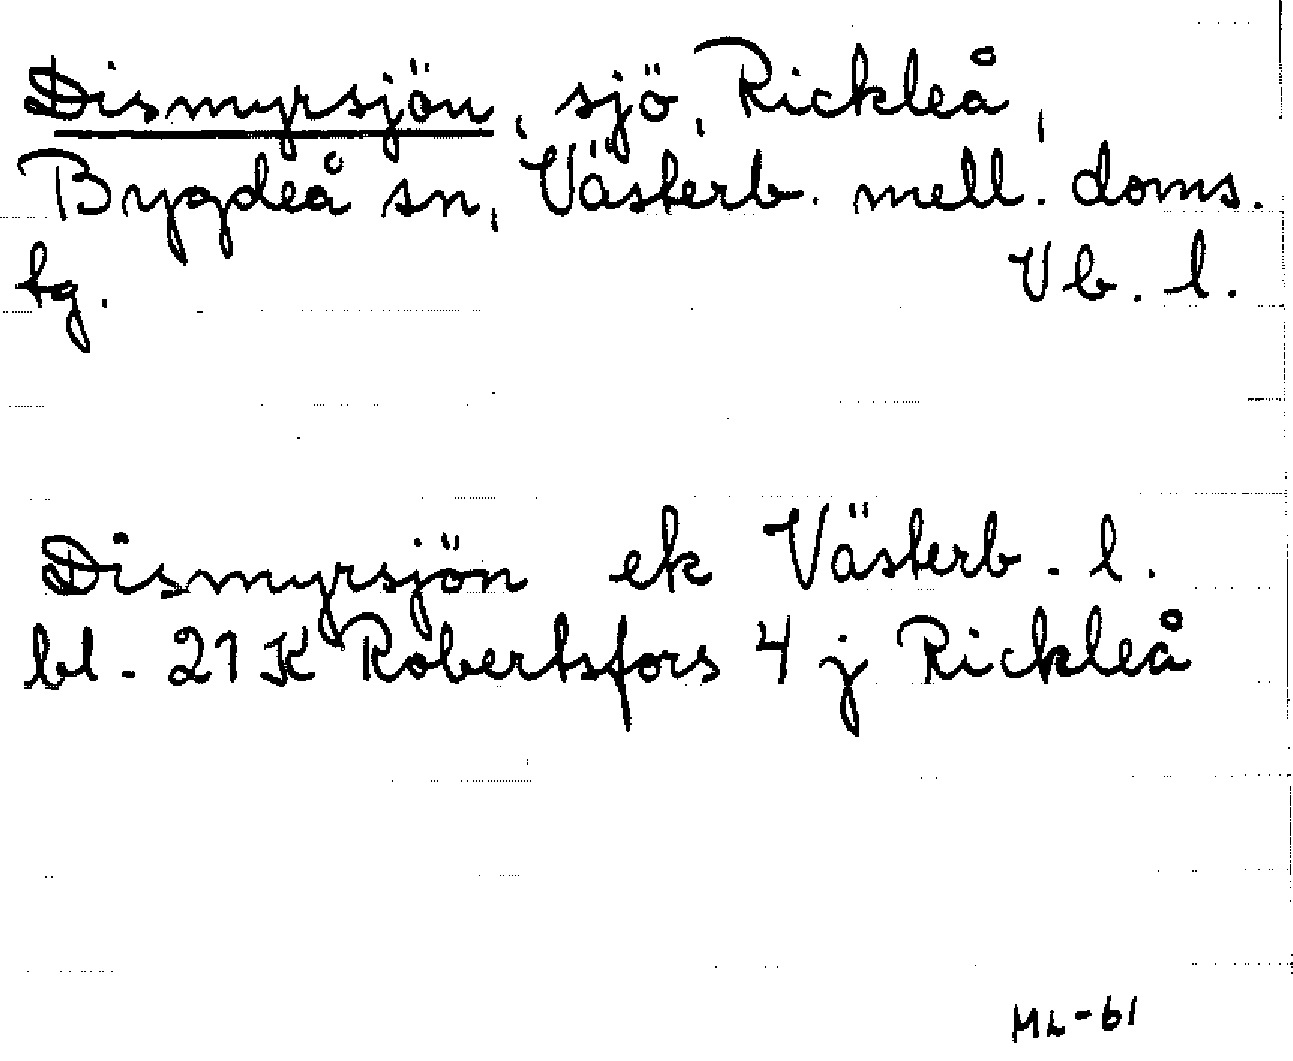 Dismyrsjön, sjö, Rickleå,
Bygdeå sn, Västerb. mell. doms.
tg. Vb. l.
Dismyrsjön ek Västerb. l.
bl. 21 K Robertsfors 4 j Rickleå
ML-61